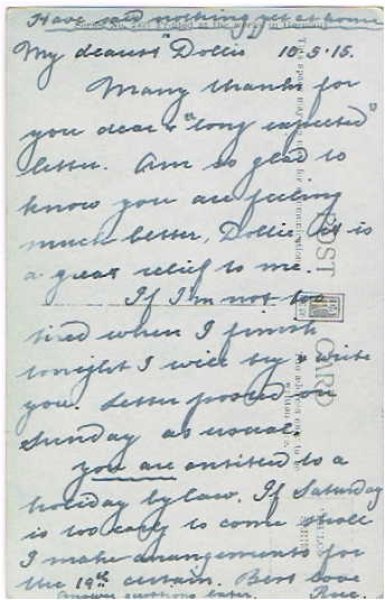 Have said nothing yet at home
My dearest Dollie 10.9.15.
Many thanks for
you dear & "long expected"
letter. Am so glad to
know you are feeling
much better, Dollie it is
a great relief to me.
If I'm not too
tired when I finish
tonight I will try & write
you. Letter posted on
Sunday as usual.
you are entitled to a
holiday by law. If Saturday
is too early to come shall
I make arrangements for
the 19th certain. Best love
Answer questions later.
POST CARD
This space may be used for communication